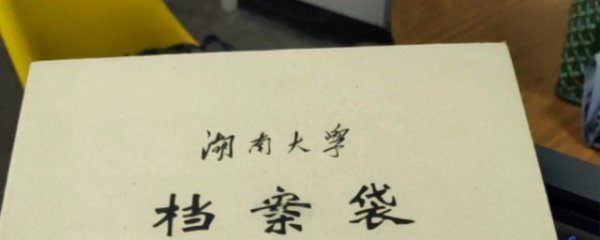 湖南大学
档案袋